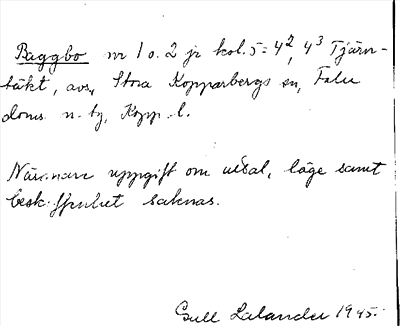 Baggbo nr 1 o. 2 jr kol. 5 = 4², 4³ Tjärn-
täkt, avs, Stora Kopparbergs sn, Falu
doms n. tg, Kopp. l.
Närmare uppgift om uttal, läge samt
beskaffenhet saknas.
Gull Lalander 1945.